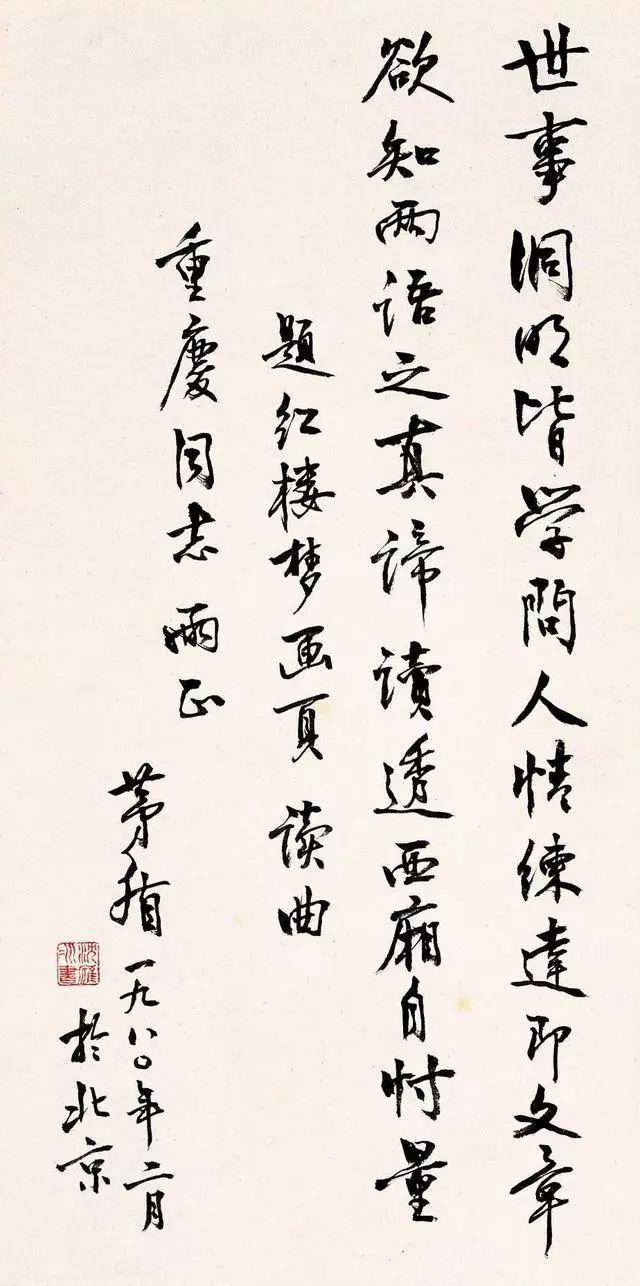 世事洞明皆学問人情練達即文章
欲知两语之真谛讀透西廂自忖量
题红楼梦画頁 读曲
重慶同志 正
茅盾 一九八〇年二月
於北京
沈雁冰書